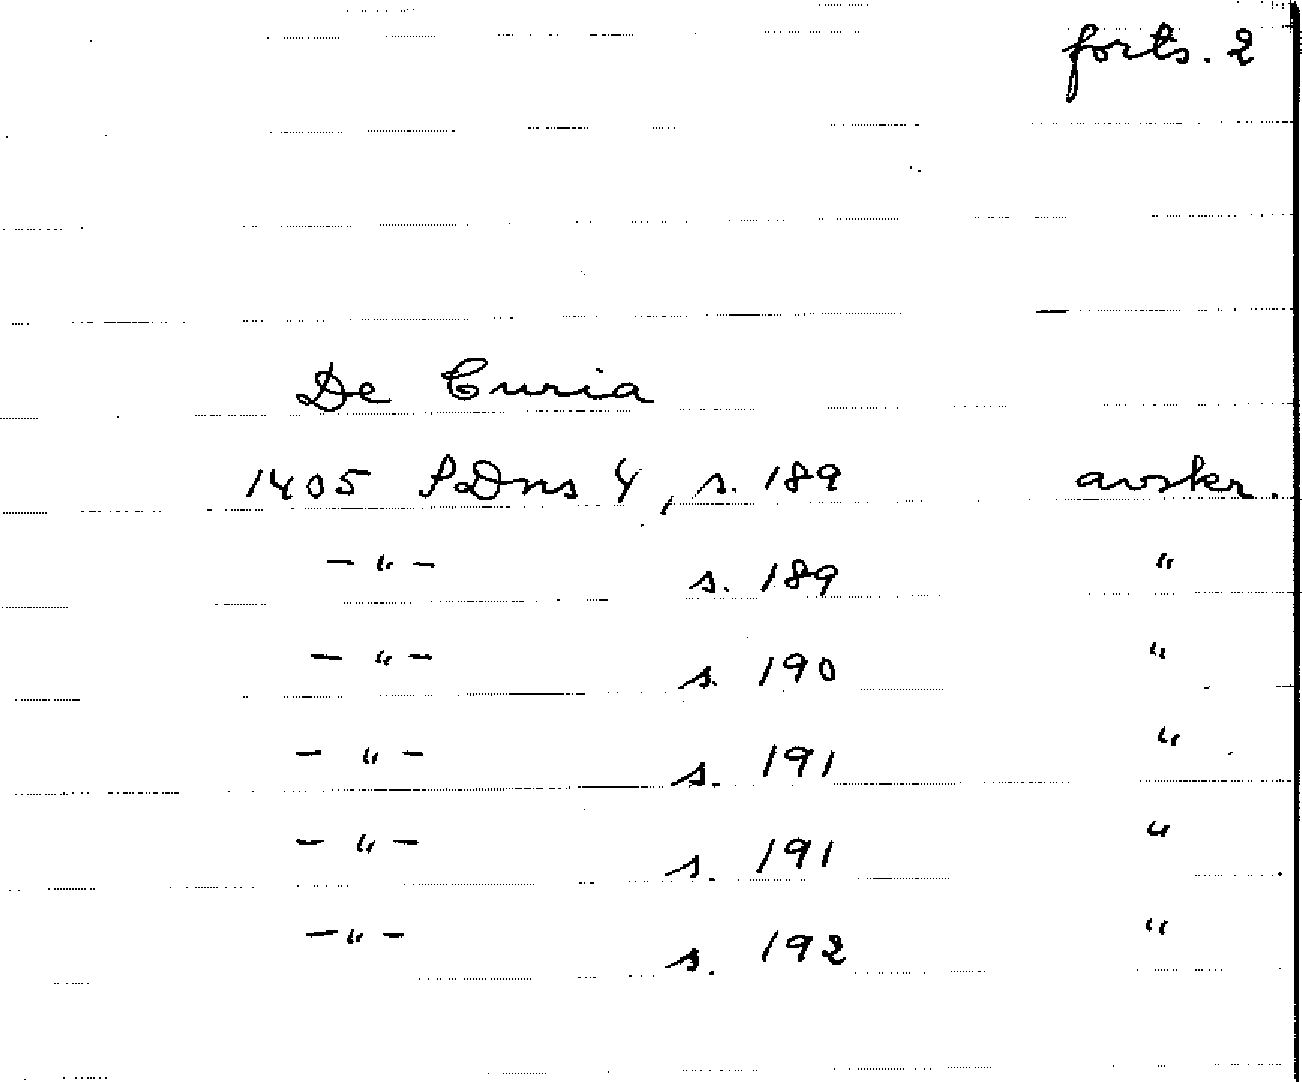 forts. 2
De Curia
1405 SDns 4, s. 189 avskr.
- " - s. 189 "
- " - s. 190 "
- " - s. 191 "
- " - s. 191 "
- " - s. 192 "